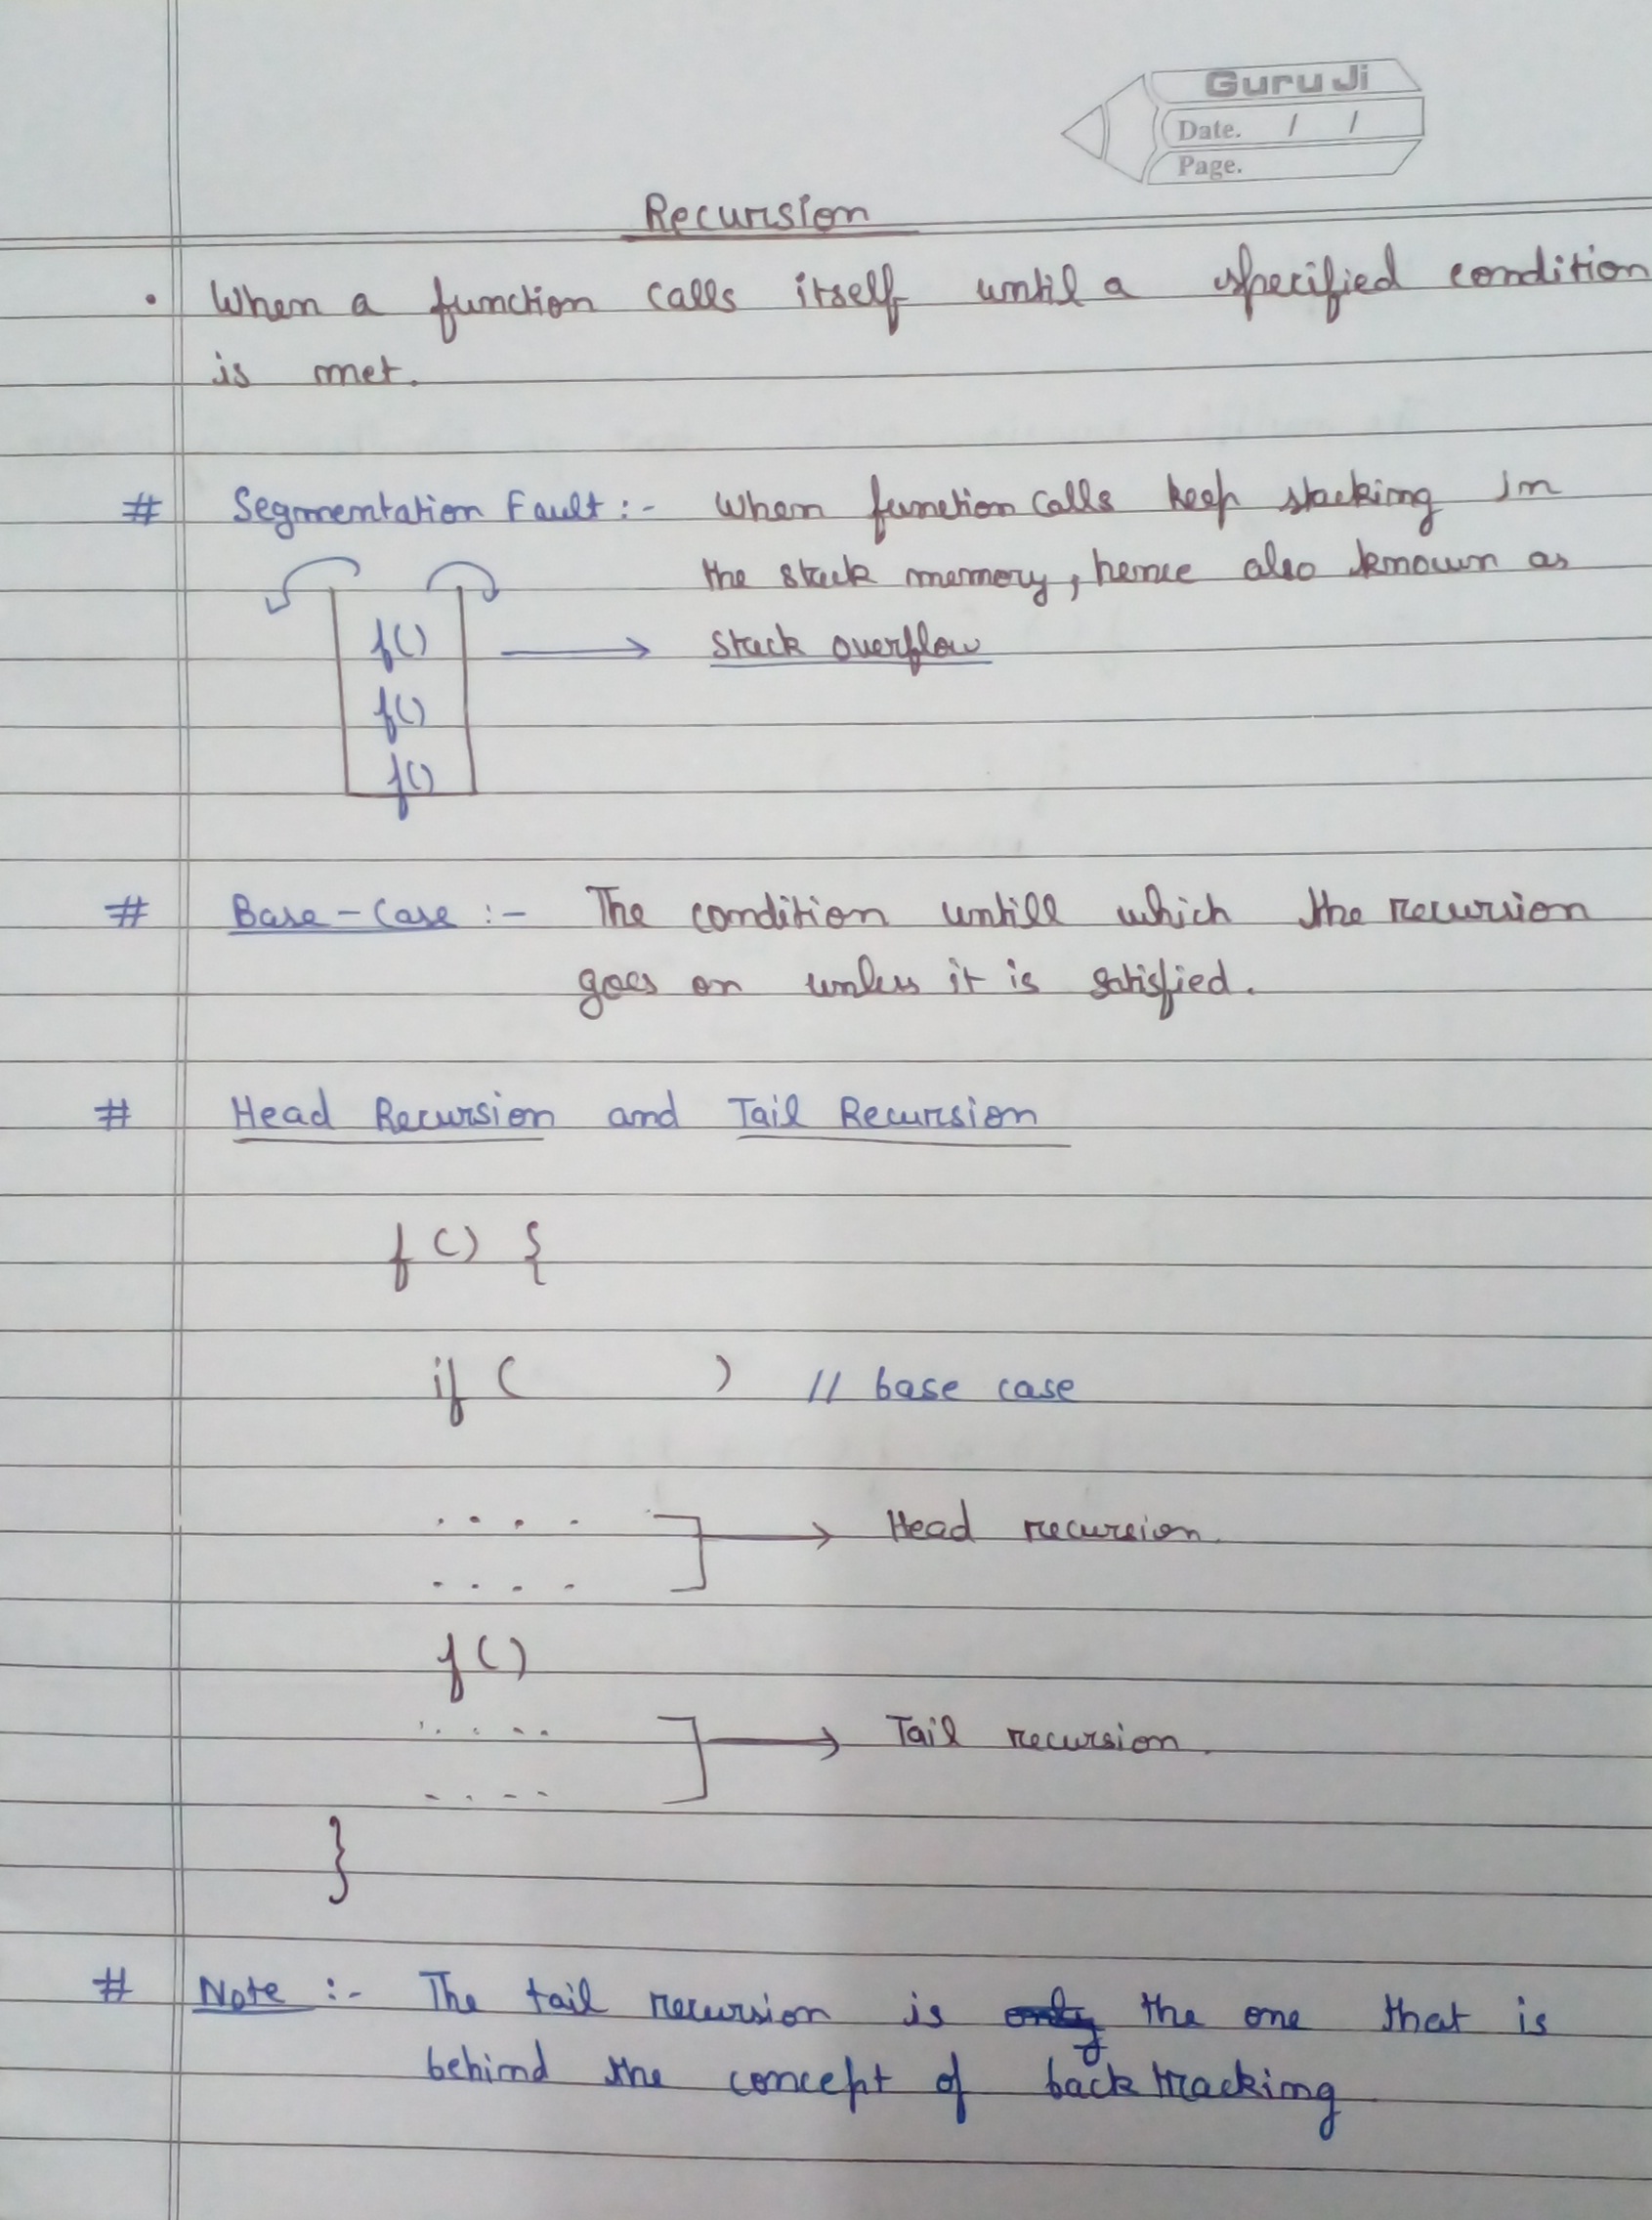 Guru Ji
Date. / /
Page.
Recursion
• When a function calls itself until a specified condition
is met.
# Segmentation Fault :- When function calls keep stacking in
the stack memory, hence also known as
f() → stack overflow
f()
f()
# Base-Case :- The condition untill which the recursion
goes on unless it is satisfied.
# Head Recursion and Tail Recursion
f () {
if ( ) // base case
. . . . → Head recursion.
. . . .
f()
. . . . . → Tail recursion.
. . . .
}
# Note :- The tail recursion is only the one that is
behind the concept of backtracking